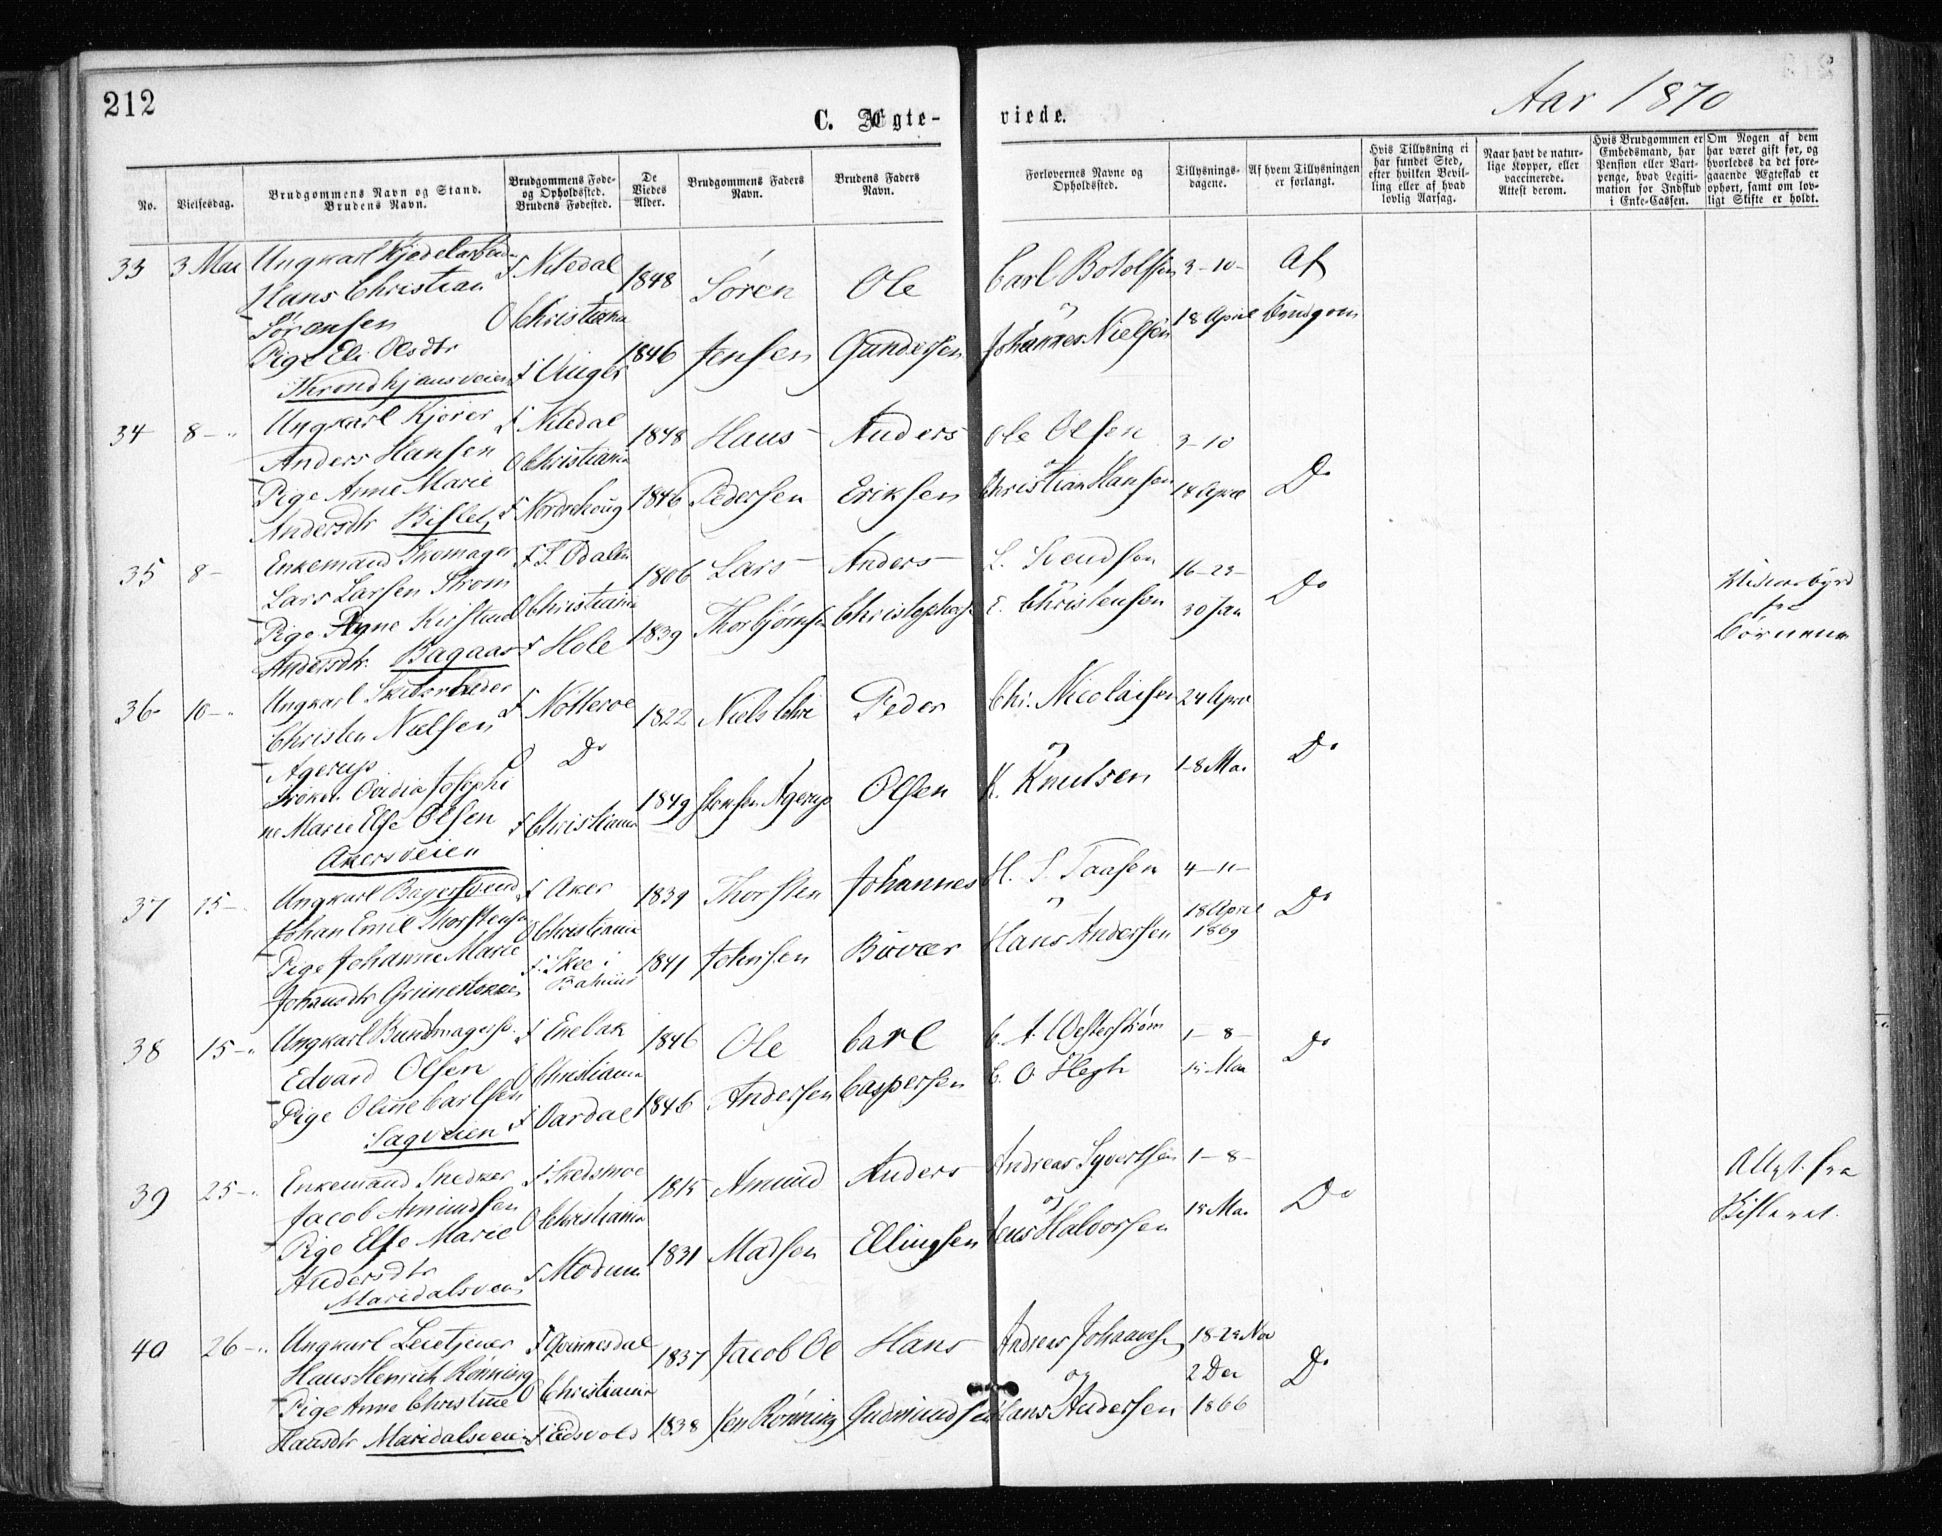 212
Aar 1870
C. Ægte-
viede.
No.
Vielsesdag.
Brudgommens Navn og Stand.
Brudens Navn.
Brudgommens Føde-
og Opholdssted.
Brudens Fødested.
De
Viedes
Alder.
Brudgommens Faders
Navn.
Brudens Faders
Navn.
Forlovernes Navne og
Opholdssted.
Tillysnings-
dagene.
Af hvem Tillysningen
er forlangt.
Hvis Tillysning ei
har fundet Sted,
efter hvilken Bevil-
ling eller af hvad
lovlig Aarsag.
Naar havt de natur-
lige Kopper, eller
vaccinerede.
Attest derom.
Hvis Brudgommen er
Embedsmand, har
Pension eller Vart-
penge, hvad Legiti-
mation for Indskud
i Enke-Cassen.
Om Nogen af dem
har været gift før, og
hvorledes da det fore-
gaaende Ægteskab er
ophørt, samt om lov-
ligt Skifte er holdt.
33 3 Mai Ungkarl
Hans Christian
Sørensen
Pige Eli Olsdtr
Throndhjemsveien
F Nitedal
O Christiania
F Vinger
1848
1846
Søren
Jensen
Ole
Gundersen
Carl Botolfsen
og
Johannes Nielsen
3-10-
18 April
Af
Brudgom
34 8 - " Ungkarl Kjører
Anders Hansen
Pige Anne Marie
Andersdtr Bislet
F Nitedal
O Christiania
F Norderhoug
1848
1846
Hans
Pedersen
Anders
Eriksen
Ole Olsen
og
Christian Hansen
3-10
14 April
Do
35 8 - Enkemand Skomager
Lars Larsen Strøm
Pige Agne
Andersdtr. Bagaas
F S. Odalen
O Christiania
F Hole
1806
1839
Lars
Thorbjørnsen
Anders
Christophers
L. Svendsen
og
E. Christensen
16-23-
30 Jan
Do
fra
Børnene
36 10 - " Ungkarl
Christen Nielsen
Agerup
Frøken Ovidia Josephi
ne Marie Else Olsen
Akersveien
F Nøtterøe
O Do
F Christiania
1822
1849
Niels
Agerup
Peder
Olsen
Chr. Nicolaisen
og
K. Knutsen
24 April
1-8 Mai
Do
37 15 - " Ungkarl Bagersvend
Johan Emil Thorstensen
Pige Johanne Marie
Johansdtr
F Aker
O Christiania
F Skee i
1839
1841
Thorsten
Johnsen
Johannes
H. S. Taasen
og
Hans Andersen
4-11-
18 April
1869
Do
38 15 - " Ungkarl
Edvard Olsen
Pige Oline Carlsen
Sagveien
F Enebak
O Christiania
F Vardal
1846
1846
Ole
Andersen
Carl
Caspersen
C. A. Westerstrøm
C. O. Hegh
1-8-
15 Mai
Do
39 25 - " Enkemand Snedker
Jacob Amundsen
Pige Else Marie
Andersdtr
Maridalsveien
F Skedsmoe
O Christiania
F Modum
1815
1831
Amund
Madsen
Anders
Ellingsen
Andreas Syvertsen
og
Jens Halvorsen
1-8-
15 Mai
Do
Attest fra
Skifteret.
40 26 - " Ungkarl Leietjener
Hans Henrich Rønning
Pige Anne Christine
Hansdtr Maridalsveien
F Qvinnesdal
O Christiania
F Eidsvold
1837
1838
Jacob Ol
sen Rønning
Hans
Gudmundsen
Andreas Johannesen
og
Hans Andersen
18-25 Nov
2 Dec
1866
Do